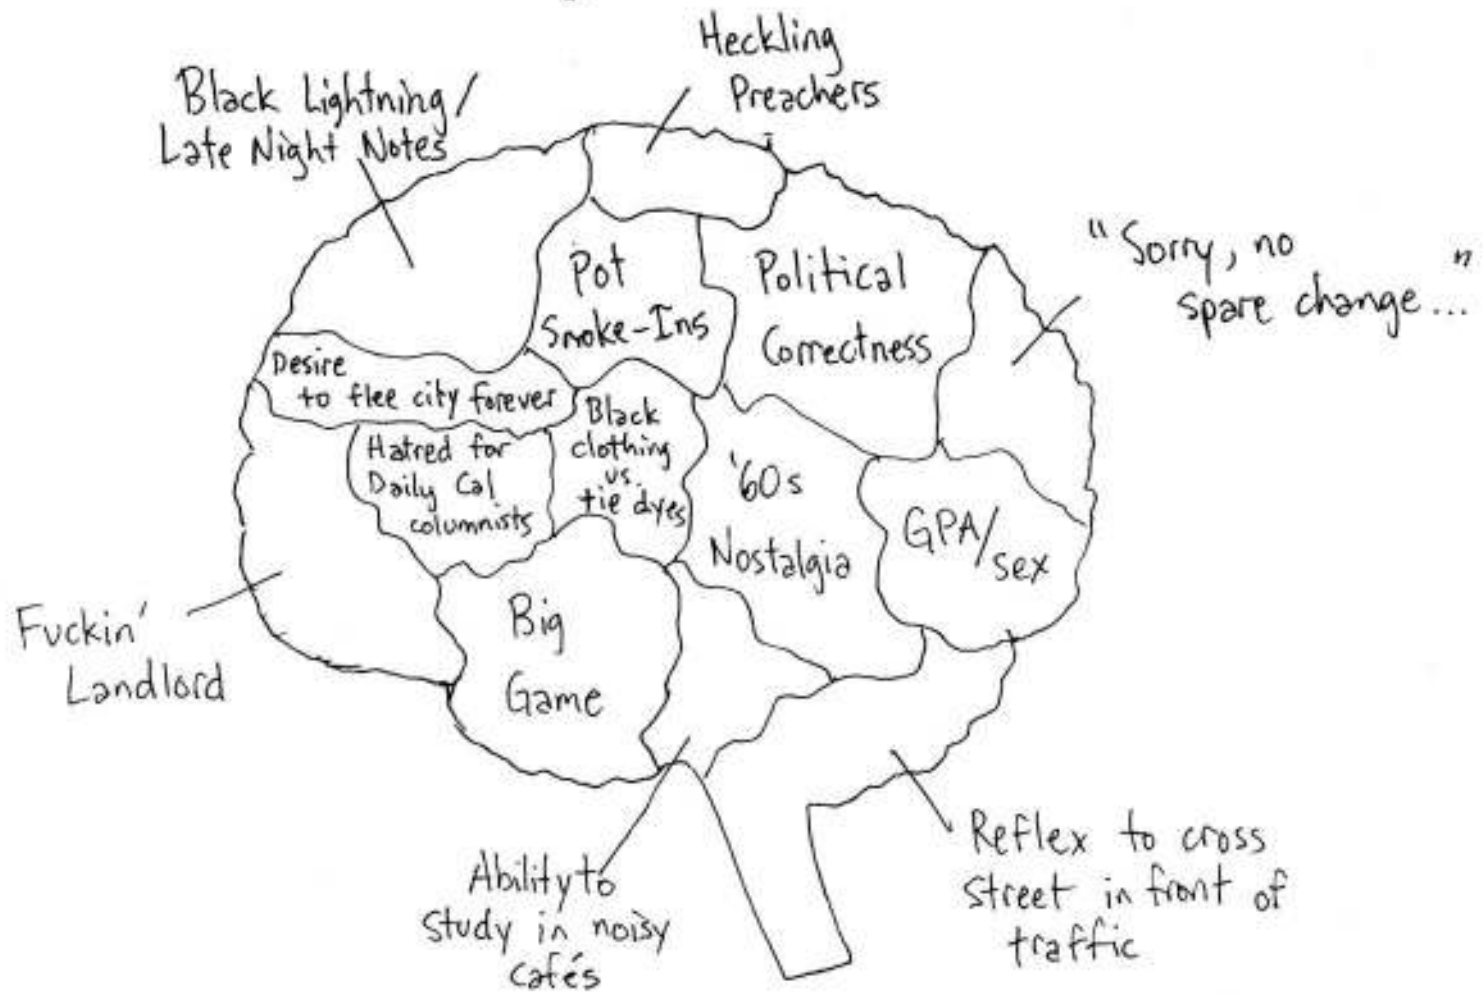 Heckling
Preachers
Black Lightning/
Late Night Notes
"Sorry, no
spare change..."
Pot
Smoke-Ins
Political
Correctness
Desire
to flee city forever
Hatred for
Daily Cal
columnists
Black
clothing
vs.
tie dyes
'60s
Nostalgia
GPA/
sex
Fuckin'
Landlord
Big
Game
Ability to
study in noisy
cafés
Reflex to cross
street in front of
traffic